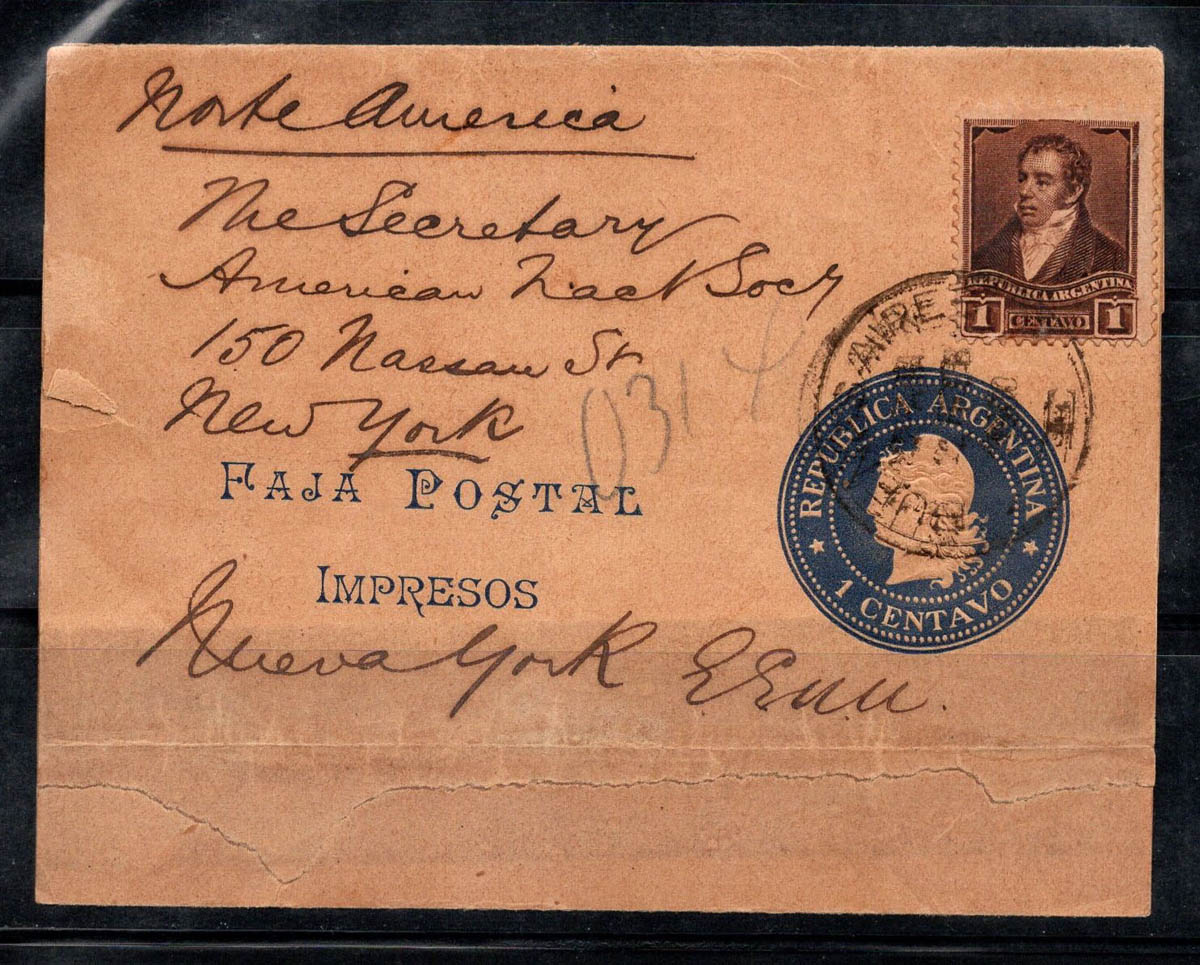 Norte America
The Secretary
American Tract Socy
150 Nassau St
New York
FAJA POSTAL
IMPRESOS
Nueva York EEUU.
REPUBLICA ARGENTINA
1 CENTAVO 1
AIRES
REPUBLICA ARGENTINA
1 CENTAVO
0314